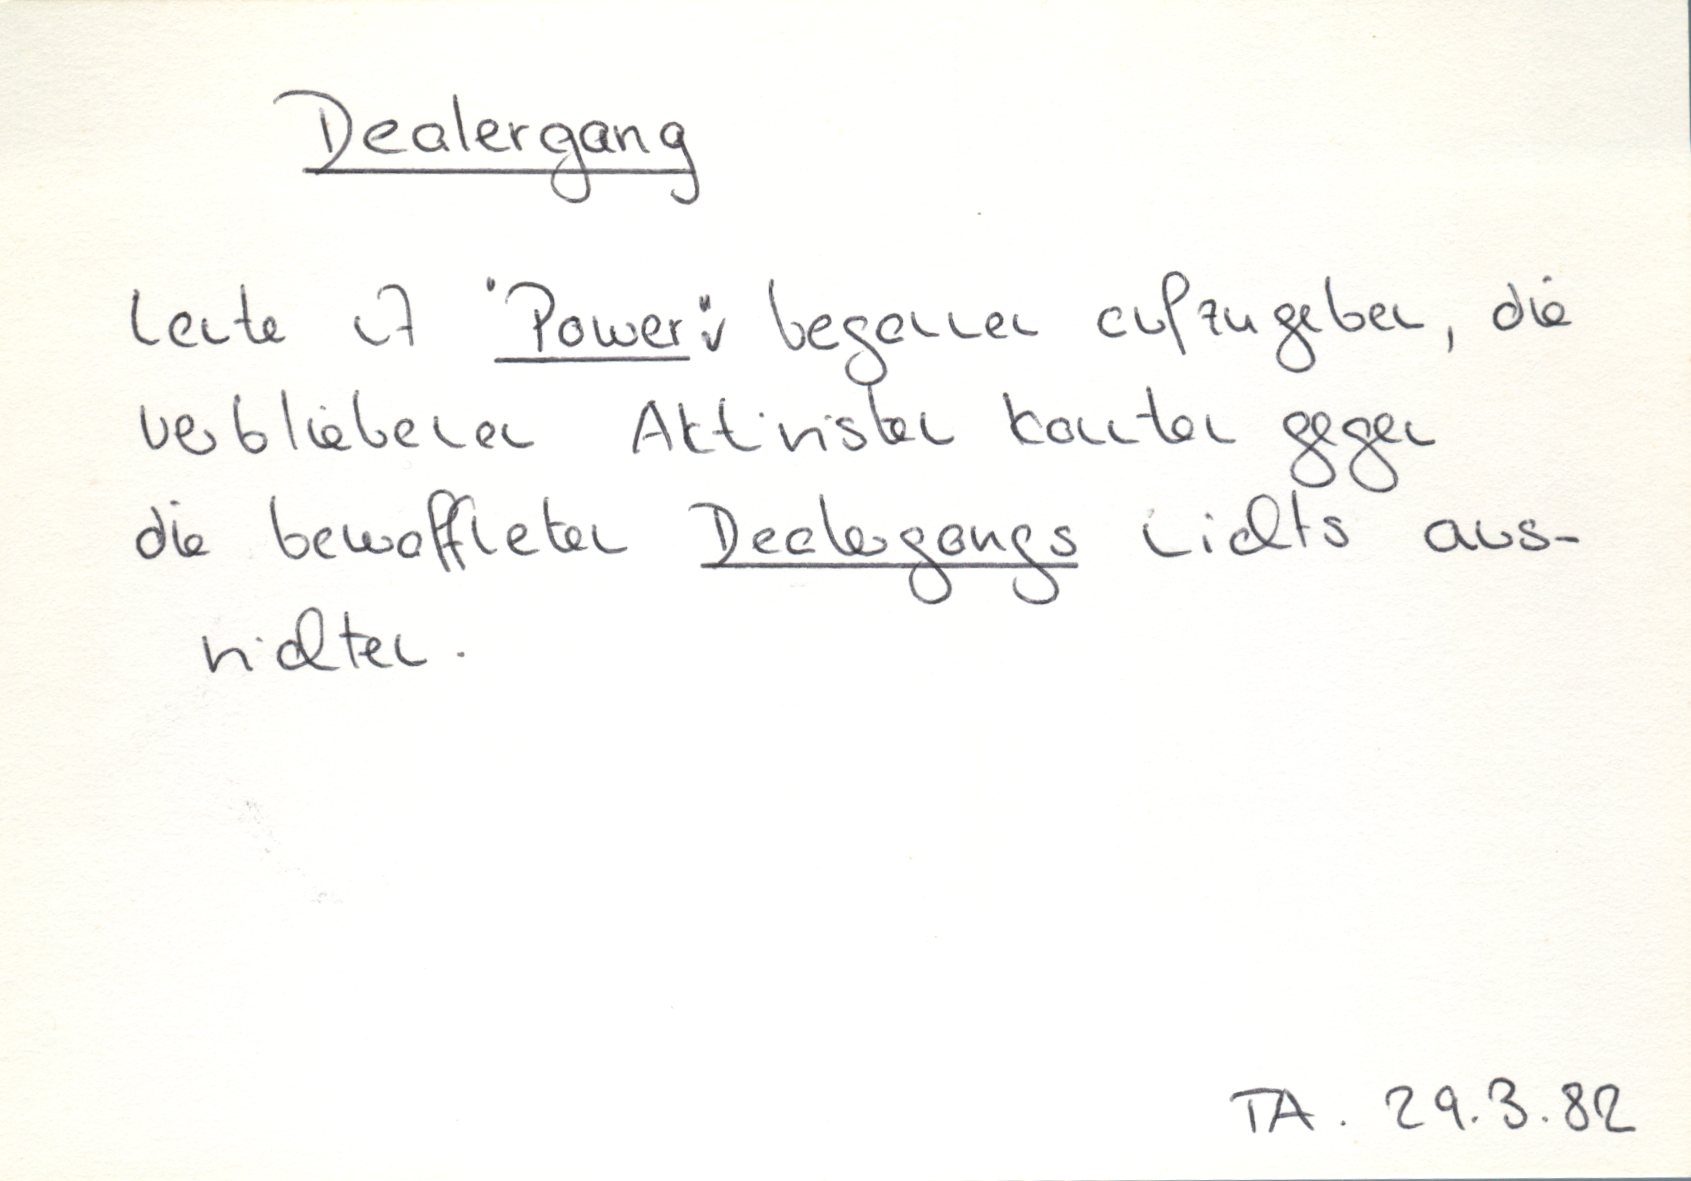 Dealergang
Leute mit "Power" begannen aufzugeben, die
verbliebenen Aktivisten konnten gegen
die bewaffneten Dealergangs nichts aus-
richten.
TA. 29.3.82